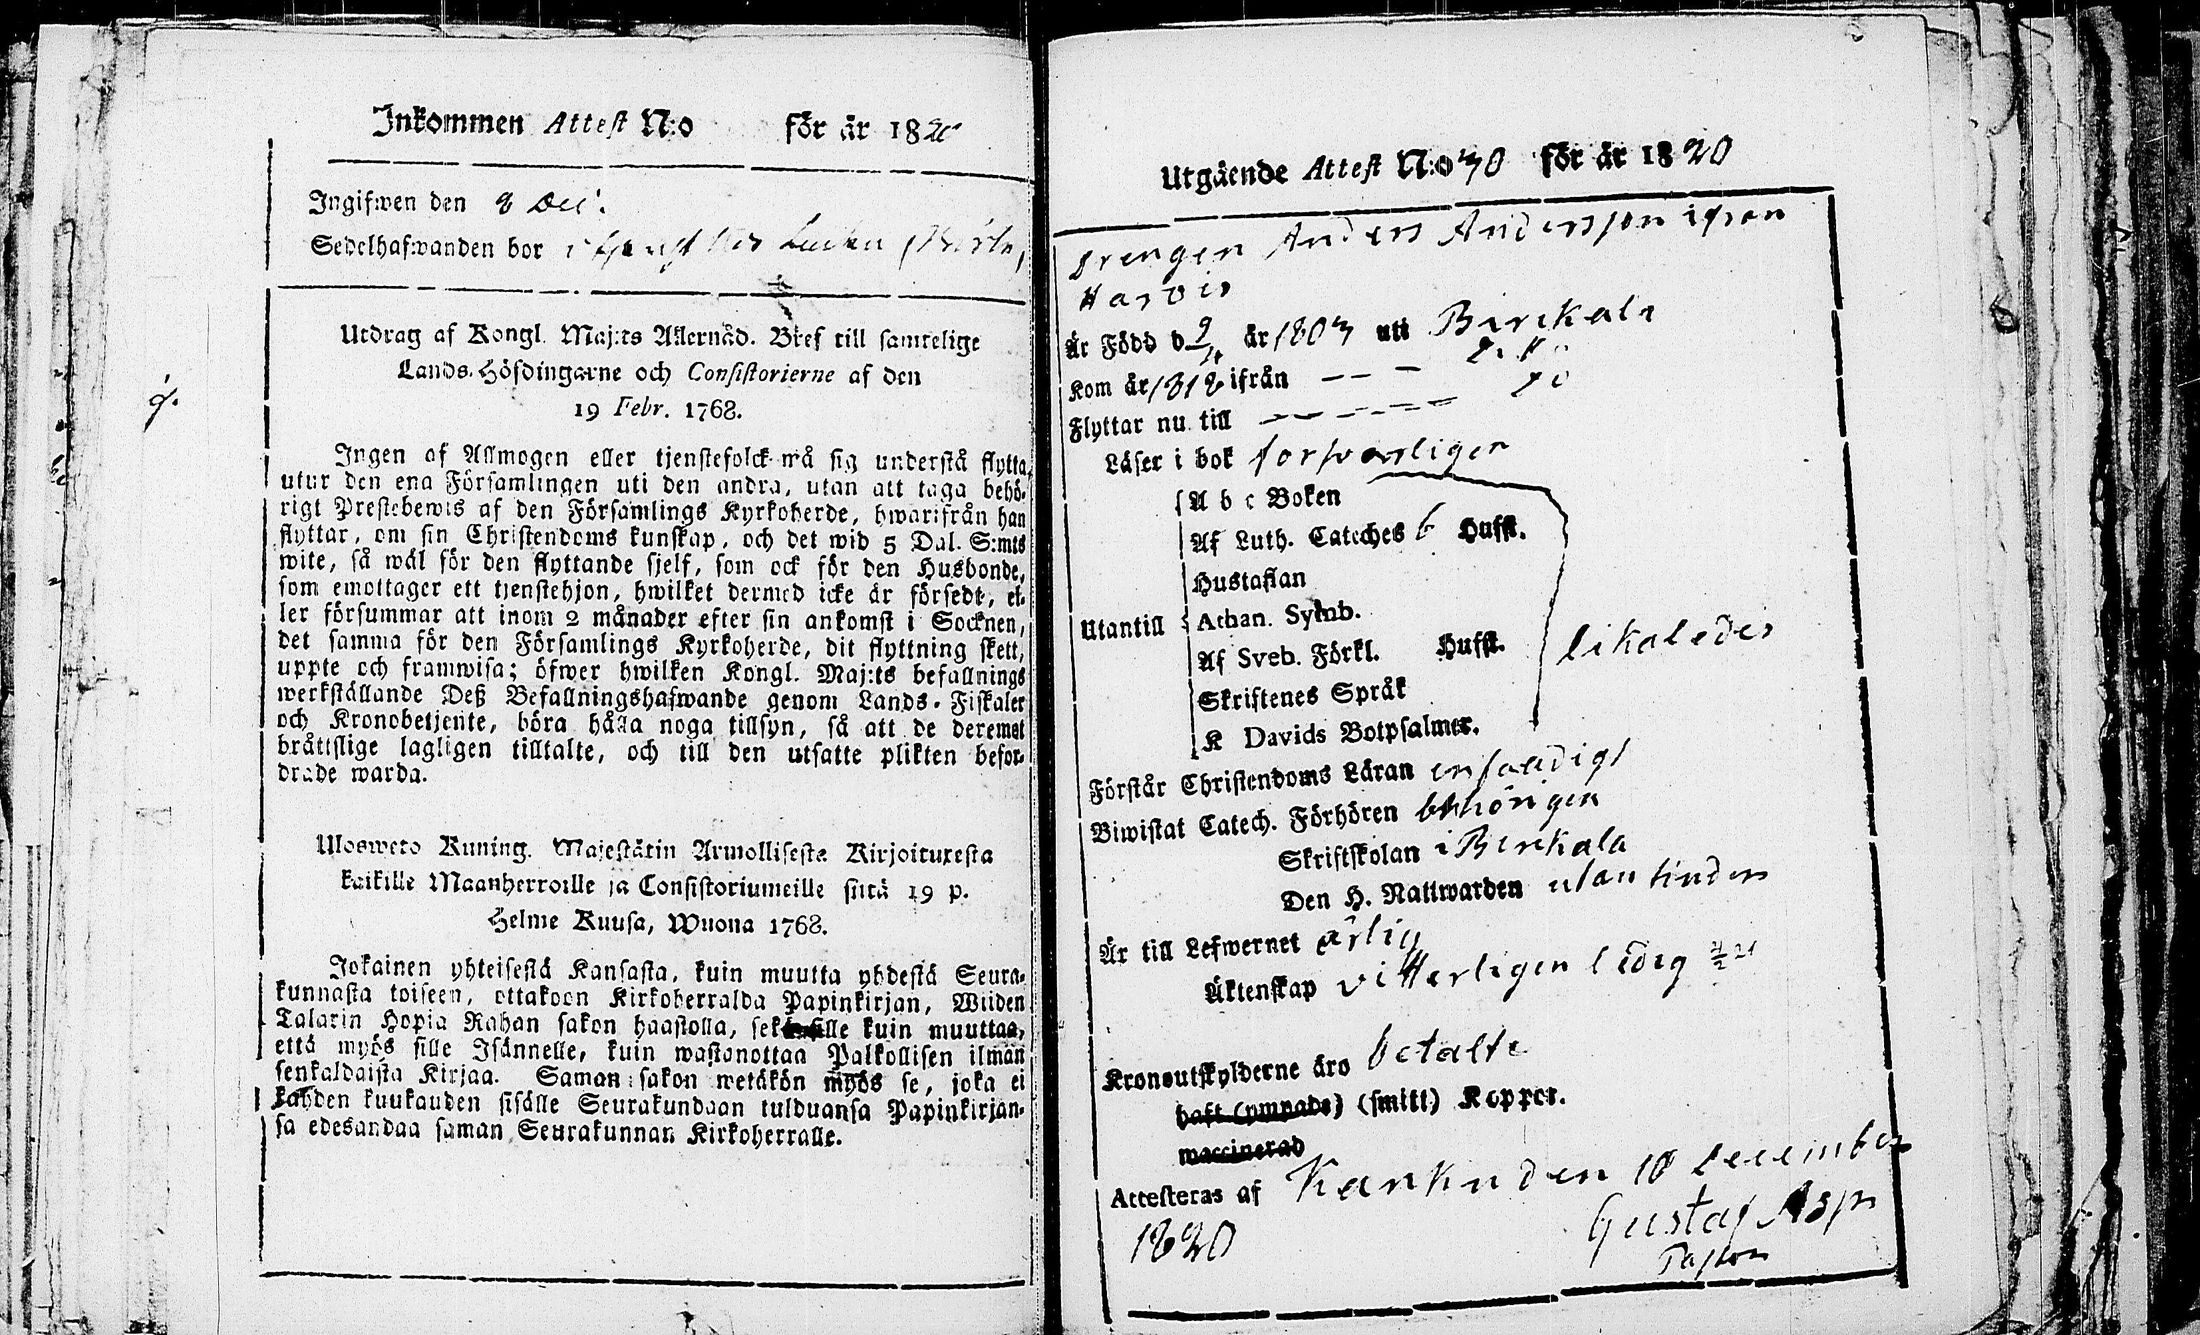 Inkommen Attest N:o för år 1820
Ingifwen den 8 Dec.
Sedelhafwanden bor
Utdrag af Kongl. Maj:ts Allernåd. Bref till samtelige
Lands-Höfdingarne och Consistorierne af den
19 Febr. 1768.
Ingen af Allmogen eller tjenstefolck må sig understå flytta
utur den ena Församlingen uti den andra, utan att taga behö-
rigt Prestebewis af den Församlings Kyrkoherde, hwarifrån han
flyttar, om sin Christendoms kunskap, och det wid 5 Dal. S:mts
wite, så wäl för den flyttande sjelf, som ock för den Husbonde,
som emottager ett tjenstehjon, hwilket dermed icke är försedt, el-
ler försummar att inom 2 månader efter sin ankomst i Socknen,
det samma för den Församlings Kyrkoherde, dit flyttning skett,
uppte och framwisa; öfwer hwilken Kongl. Maj:ts befallnings
werkställande Deß Befallningshafwande genom Lands-Fiskaler
och Kronobetjente, böra hålla noga tillsyn, så att de deremot
bråttslige lagligen tilltalte, och till den utsatte plikten befor-
drade warda.
Uloswetö Kuning. Majestätin Armollisesta Kirjoituxesta
kaikille Maanherroille ja Consistoriumeille siitä 19 p.
Helme Kuusa, Wuona 1768.
Jokainen yhteisestä Kansasta, kuin muutta yhdestä Seura-
kunnasta toiseen, ottakoon Kirkoherralda Papinkirjan, Wiiden
Talarin Hopia Rahan sakon haastolla, sekä sille kuin muuttaa,
että myös sille Isännelle, kuin wastanottaa Palkollisen ilman
senkaldaista Kirjaa. Saman sakon wetäkön myös se, joka ei
kahden kuukauden sisälle Seurakundaan tulduansa Papinkirjan-
sa edesandaa saman Seurakunnan Kirkoherralle.
Utgående Attest N:o 70 för år 1820
Drengen Anders Andersson ifrån
Harvis
Är Född d 9/4 år 1803 uti Birckala
Kom år 1818 ifrån — — — do
Flyttar nu till — — — — — do
Läser i bok försvarligen
A b c Boken
Af Luth. Cateches 6 Hufst.
Hustaflan
Utantill Athan. Symb.
Af Sveb. Förkl. Hufst. likaledes
Skriftenes Språk
K Davids Botpsalmer.
Förstår Christendoms Läran enfaldigt
Biwistat Catech. Förhören behörigen
Skriftskolan i Birckala
Den H. Nattwarden utan hinder
Är till Lefwernet ärlig
Äktenskap vitterligen ledig
Kronoutskylderne äro betalte
haft (ympade) (smitt) Koppor.
waccinerad
Attesteras af Karkku den 10 December
1820 Gustaf Asp
Pastor